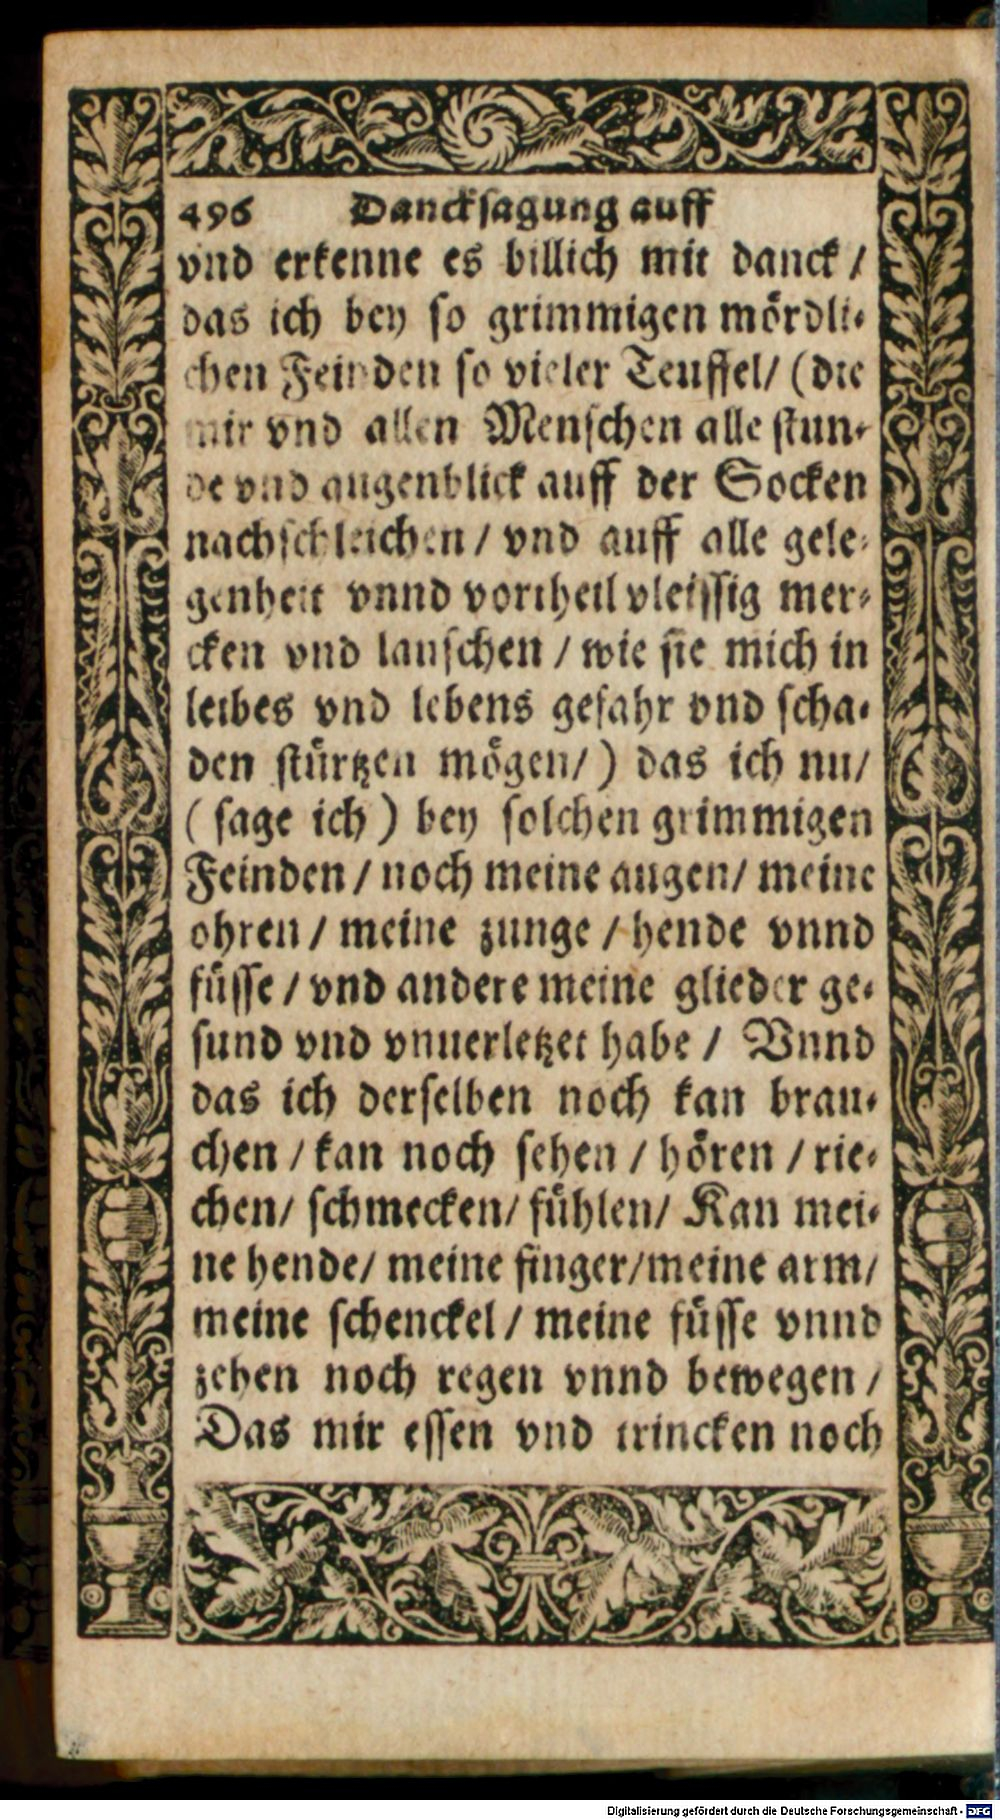 496 Dancksagung auff
vnd erkenne es billich mit danck /
das ich bey so grimmigen mördli-
chen Feinden so vieler Teuffel/ (die
mir vnd allen Menschen alle stun-
de vnd augenblick auff der Socken
nachschleichen / vnd auff alle gele-
genheit vnnd vortheil vleissig mer-
cken vnd lauschen / wie sie mich in
leibes vnd lebens gefahr vnd scha-
den stürtzen mögen/) das ich nu/
( sage ich ) bey solchen grimmigen
Feinden / noch meine augen/ meine
ohren / meine zunge / hende vnnd
füsse / vnd andere meine glieder ge-
sund vnd vnuerletzet habe / Vnnd
das ich derselben noch kan brau-
chen / kan noch sehen / hören / rie-
chen/ schmecken/ fühlen/ Kan mei-
ne hende/ meine finger/meine arm/
meine schenckel / meine füsse vnnd
zehen noch regen vnnd bewegen /
Das mir essen vnd trincken noch
Digitalisierung gefördert durch die Deutsche Forschungsgemeinschaft - DFG